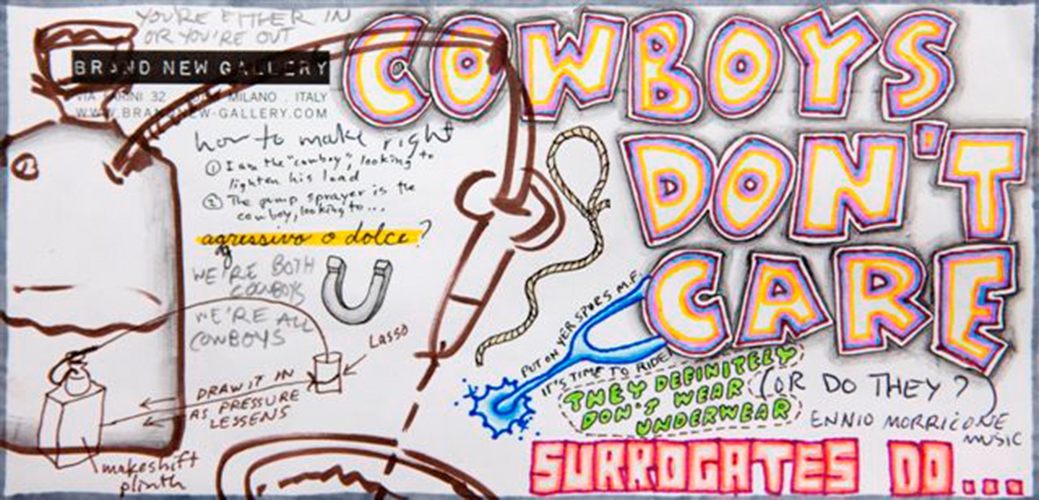 YOU'RE EITHER IN
OR YOU'RE OUT
BRAND NEW GALLERY
VIA FARINI 32 MILANO . ITALY
WWW.BRAND-NEW-GALLERY.COM
how to make right
① I am the "cowboy", looking to
lighten his load
② The pump sprayer is the
cowboy, looking to...
agressivo o dolce?
WE'RE BOTH
COWBOYS
WE'RE ALL
COWBOYS
LASSO
DRAW IT IN
AS PRESSURE
LESSENS
makeshift
plinth
COWBOYS
DON'T
CARE
PUT ON YER SPURS M.F.
IT'S TIME TO RIDE!
THEY DEFINITELY
DON'T WEAR
UNDERWEAR
(OR DO THEY?
ENNIO MORRICONE
MUSIC
SURROGATES DO...